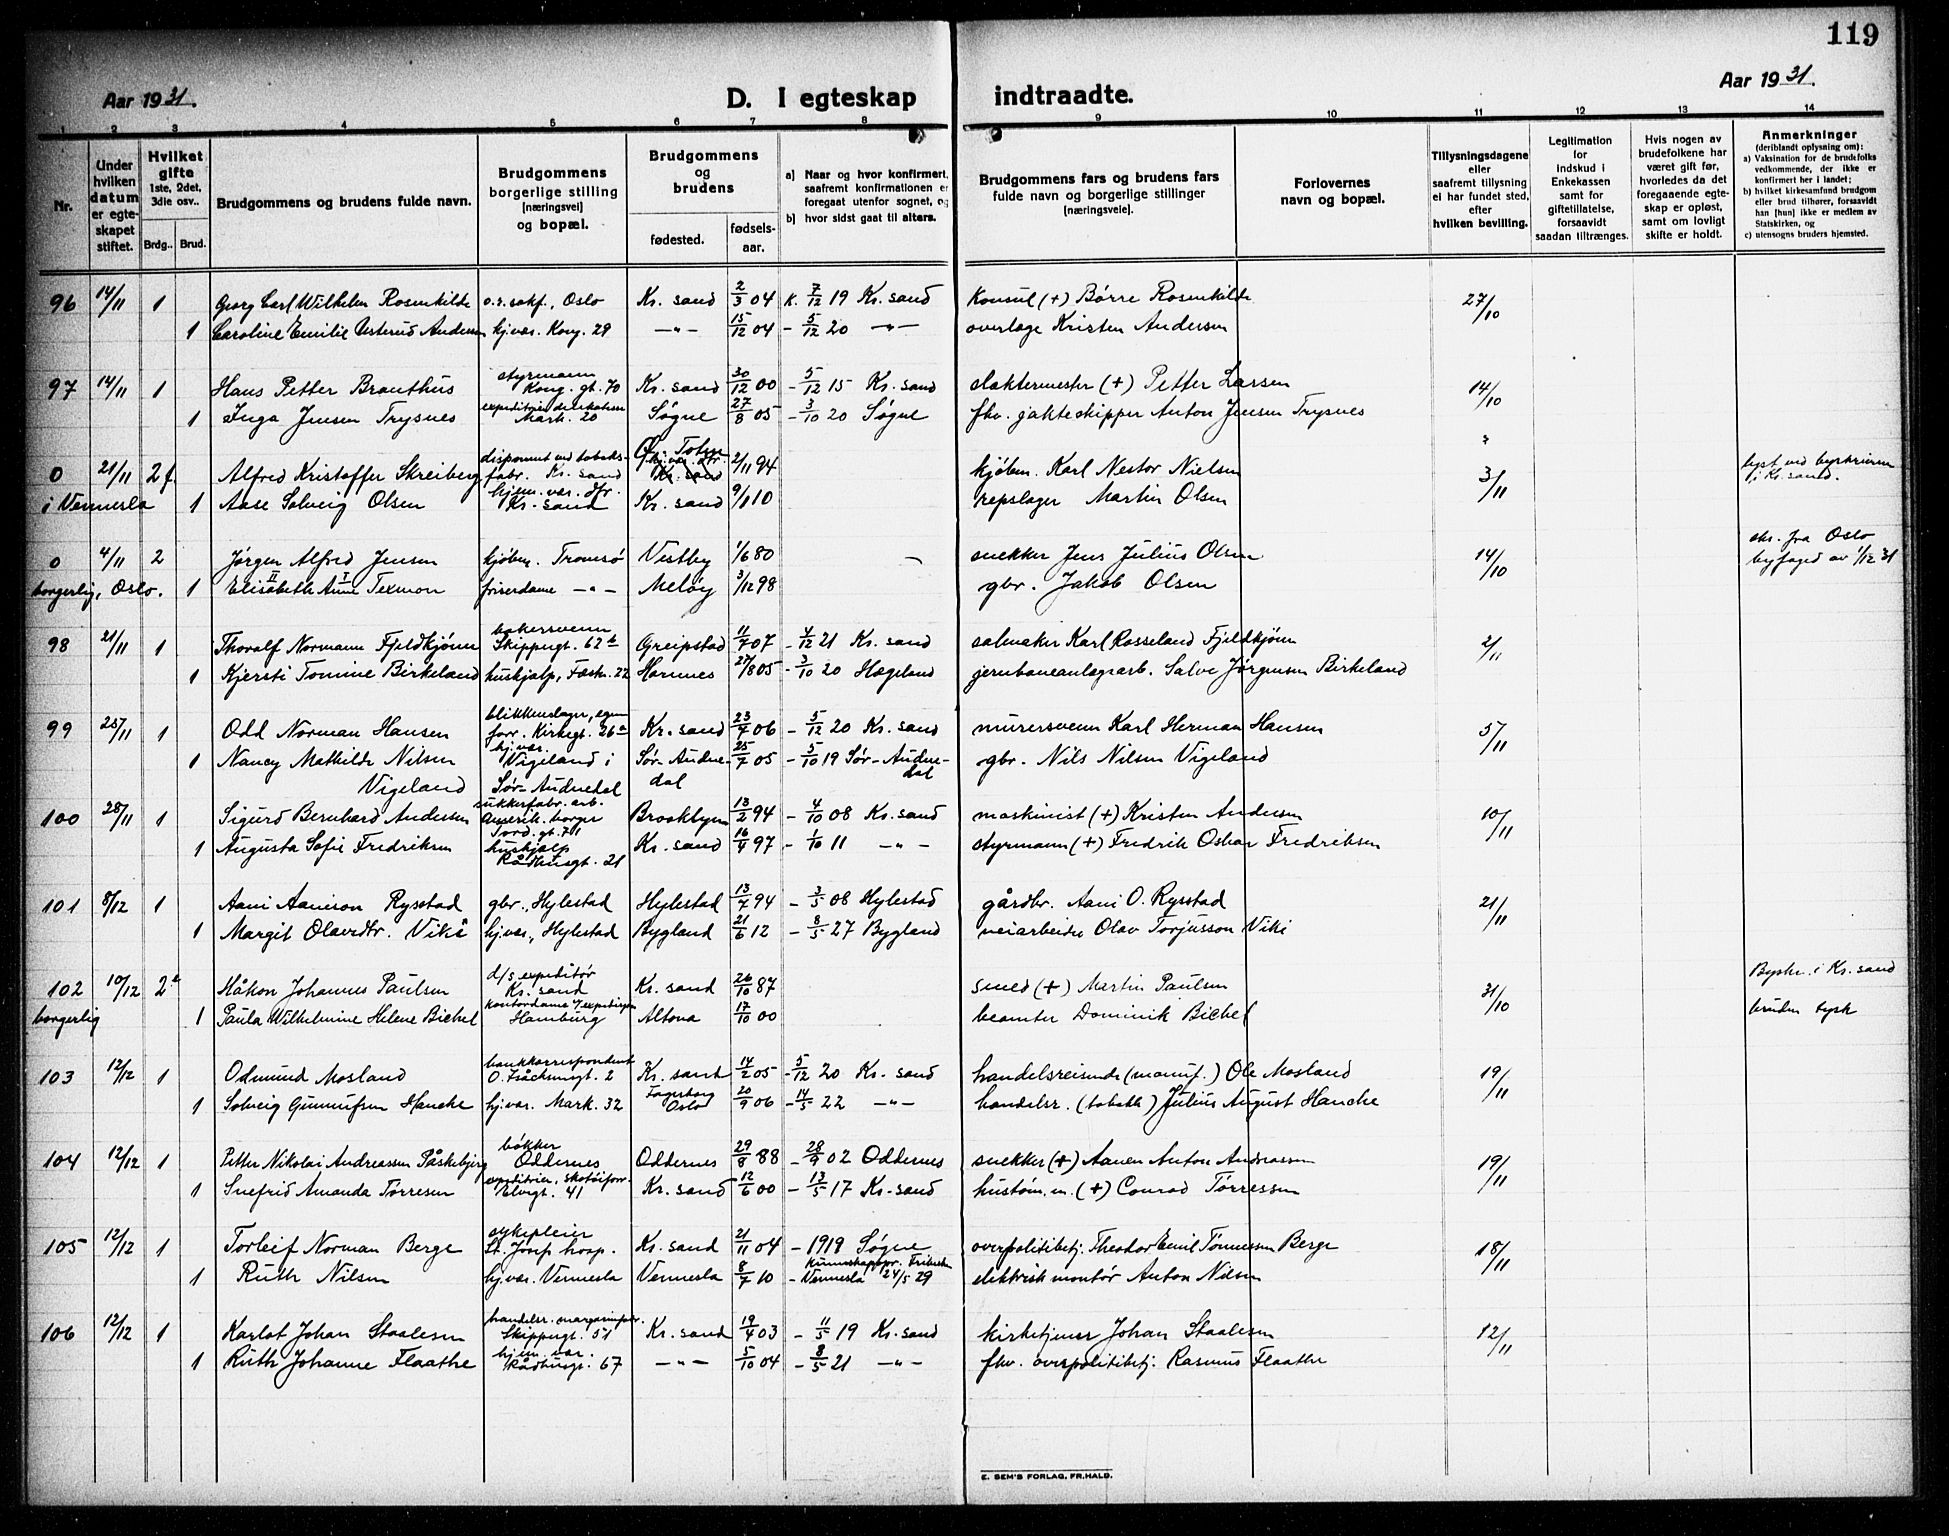 119
Aar 1931.
D. I egteskap indtraadte.
Aar 1931.
1 2 3 4 5 6 7 8 9 10 11 12 13 14
Nr.
Under hvilken datum er egteskapet stiftet.
Hvilket gifte 1ste, 2det, 3die osv..
Brdg.. Brud.
Brudgommens og brudens fulde navn.
Brudgommens borgerlige stilling [næringsvei] og bopæl.
Brudgommens og brudens
fødested. fødselsaar.
a) Naar og hvor konfirmert, saafremt konfirmationen er foregaat utenfor sognet, og
b) hvor sidst gaat til alters.
Brudgommens fars og brudens fars fulde navn og borgerlige stillinger [næringsveie].
Forlovernes navn og bopæl.
Tillysningsdagene eller saafremt tillysning ei har fundet sted, efter hvilken bevilling.
Legitimation for indskud i Enkekassen samt for giftetillatelse, forsaavidt saadan tiltrænges.
Hvis nogen av brudefolkene har været gift før, hvorledes da det foregaaende egteskap er opløst, samt om lovligt skifte er holdt.
Anmerkninger (deriblandt oplysning om):
a) Vaksination for de brudefolks vedkommende, der ikke er konfirmert her i landet;
b) hvilket kirkesamfund brudgom eller brud tilhører, forsaavidt han [hun] ikke er medlem av Statskirken, og
c) utensogns bruders hjemsted.
96 14/11 1 Georg Carl Wilhelm Rosenkilde o.r.sakf., Oslo Kr. sand 2/3 04 K. 7/12 19 Kr. sand Konsul (+) Børre Rosenkilde 27/10
1 Caroline Emilie Usterud Andersen hj.vær. Kong. 29 —"— 15/12 04 - 5/12 20 —"— overlæge Kristen Andersen
97 14/11 1 Hans Petter Brauthus styrmann Kong. gt. 70 Kr. sand 30/12 00 - 5/12 15 Kr. sand slaktermester (+) Petter Larsen 14/10
1 Inga Jensen Trysnes Mark. 20 Søgne 27/8 05 - 3/10 20 Søgne fhv. jakteskipper Anton Jensen Trysnes
0 21/11 2 f. Alfred Kristoffer Skreiberg disponent ved tobaksfabr. Kr. sand 2/11 94 kjøbm. Karl Nestor Nielsen 3/11
i Vennesla 1 Aase Solveig Olsen hjem. vær. Kr. sand Kr. sand 9/1 10 repslager Martin Olsen
i Kr. sand.
0 4/11 2 Jørgen Alfred Jensen kjøbm. Tromsø Vestby 1/6 80 snekker Jens Julius Olsen 14/10 fra Oslo
borgerlig, Oslo. 1 Elisabeth Anne Texmon frisørdame —"— Meløy 3/12 98 gbr. Jakob Olsen byfoged av 1/12 31
98 21/11 1 Thoralf Normann Fjeldkjønn bakersvenn Skippergt. 62 b Greipstad 11/7 07 - 4/12 21 Kr. sand salmaker Karl Rosseland Fjeldkjønn 2/11
1 Kjersti Tomine Birkeland huskjelp, Fæstn. 22 Hornnes 27/8 05 - 3/10 20 Hægeland jernbaneanlægsarb. Salve Jørgensen Birkeland
99 25/11 1 Odd Norman Hansen blikkenslager, egen forr. Kirkegt. 26 a Kr. sand 23/7 06 - 5/12 20 Kr. sand murersvenn Karl Herman Hansen 5/11
1 Nancy Mathilde Nilsen Vigeland hj.vær. Vigeland i Sør-Audnedal Sør-Audnedal 25/7 05 - 5/10 19 Sør-Audnedal gbr. Nils Nilsen Vigeland
100 28/11 1 Sigurd Bernhard Andersen sukkerfabr. arb. amerik. borger Tord. gt. 711 Brooklyn 13/2 94 - 4/10 08 Kr. sand maskinist (+) Kristen Andersen 10/11
1 Augusta Sofie Fredriksen huskjelp Rådhusgt. 21 Kr. sand 16/4 97 - 1/10 11 —"— styrmann (+) Fredrik Oskar Fredriksen
101 8/12 1 Aani Aanison Rysstad gbr., Hylestad Hylestad 13/7 94 - 3/5 08 Hylestad gårdbr. Aani O. Rysstad 21/11
1 Margit Olavsdtr. Viki hj.vær., Hylestad Bygland 21/6 12 - 8/5 27 Bygland veiarbeider Olav Torjusson Viki
102 10/12 2 Håkon Johannes Paulsen d/s expeditør Kr. sand Kr. sand 26/10 87 smed (+) Martin Paulsen 31/10 Byskr. i Kr. sand
borgerlig 1 Paula Wilhelmine Helene Bichel kontordame Hamburg Altona 17/10 00 beamter Dominik Bichel bruden tysk
103 12/12 1 Odmund Mosland bankkorrespondent O. Isåchsensgt. 2 Kr. sand 14/2 05 - 5/12 20 Kr. sand handelsreisende (manuf.) Ole Mosland 19/11
1 Solveig Gunnufsen Hancke hj.vær. Mark. 32 Fagerborg Oslo 20/9 06 - 14/5 22 —"— handelsr. (tobakk) Julius August Hancke
104 12/12 1 Petter Nikolai Andreassen Påskebjerg bøkker Oddernes Oddernes 29/8 88 - 28/9 02 Oddernes snekker (+) Aanen Anton Andreassen 19/11
1 Snefrid Amanda Tørresen expeditrise, skotøiforr. Elvegt. 41 Kr. sand 12/6 00 - 13/5 17 Kr. sand hustøm.m. (+) Conrad Tørressen
105 12/12 1 Torleif Norman Berge sykepleier St. Josep hosp. Kr. sand 21/11 04 - 1919 Søgne overpolitibetj. Theodor Emil Tønnessen Berge 18/11
1 Ruth Nilsen hj.vær. Vennesla Vennesla 8/7 10 - Vennesla 24/5 29 elektrisk montør Anton Nilsen
106 12/12 1 Karlot Johan Staalesen Skippergt. 51 Kr. sand 19/4 03 - 11/5 19 Kr. sand kirketjener Johan Staalesen 12/11
1 Ruth Johanne Flaathe hjem. vær. Rådhusgt. 67 —"— 5/10 04 - 8/5 21 —"— fhv. overpolitibetj. Rasmus Flaathe
E. SEM'S FORLAG, FR.HALD.